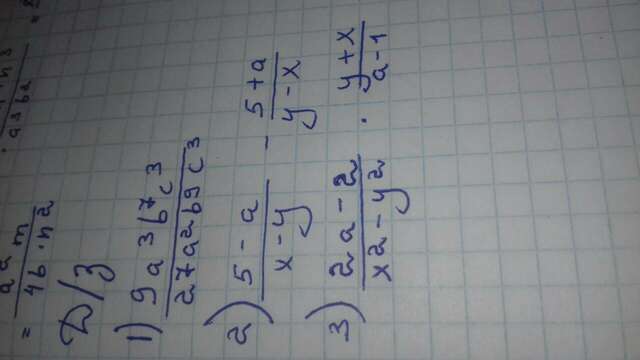 = a² m / 4b · n²
a³b²
Д/з
1) 9a³b⁷c³ / 27a²b⁹c³
2) 5 - a / x - y - 5 + a / y - x
3) 2a - 2 / x² - y² · y + x / a - 1